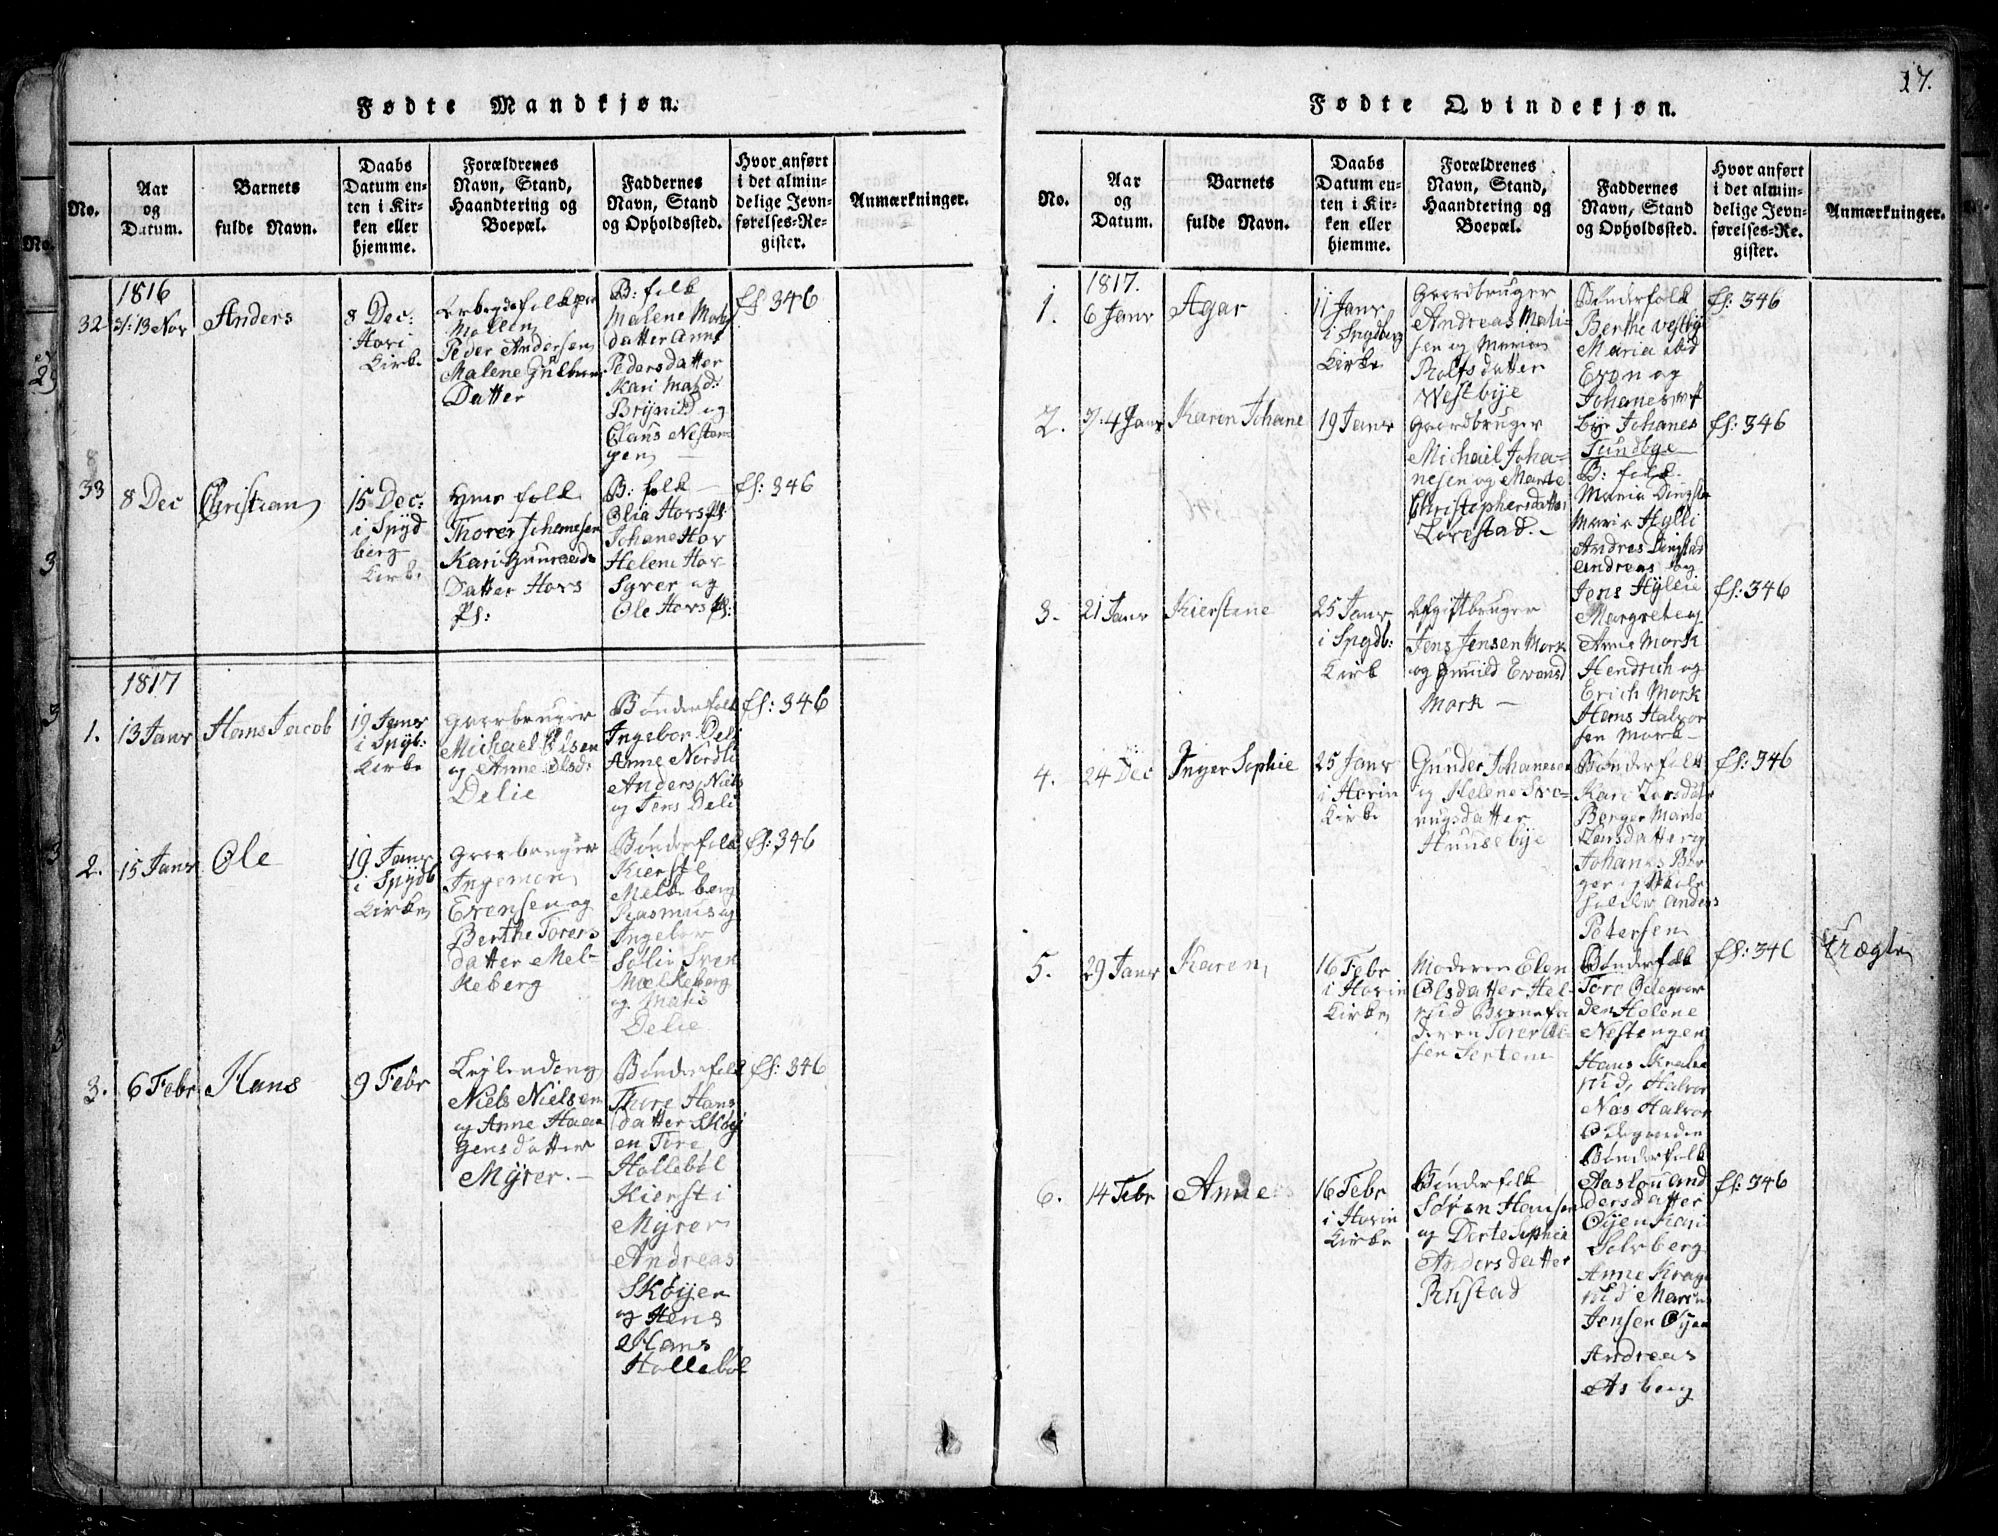 17.
Fødte Mandkjøn.
No.
Aar
og
Datum.
Barnets
fulde Navn.
Daabs
Datum en-
ten i Kir-
ken eller
hjemme.
Forældrenes
Navn, Stand,
Haandtering og
Boepæl.
Faddernes
Navn, Stand
og Opholdssted.
Hvor anført
i det almin-
delige Jevn-
førelses-Re-
gister.
Anmærkninger.
1816
32
13 Nov
Anders
8 Dec:
Hovi
Kirke
Malen
Peder Andersen
Malene
Datter
B: folk
Malene
datter Anne
Pedersdatter
Kari
Brynild og
Claus Nesten-
gen
fS: 346
33
8 Dec
Christian
15 Dec:
i Spyd
berg
Kirke
folk
Thorer Johanesen
Kari
Datter Hovs
Pl:
B: folk
Olia Hovs Pl:
Johane Hov
Helene Hov
Syver og
Ole Hovs Pl:
fS: 346
1817
1.
13 Janr
Hans Jacob
19 Janr
i Spyb:
Kirke
Michael Olsen
og Anne Olsd:
Delie
Bønderfolk
Ingebor Deli
Anne Nordli
Anders Niels
og Jens Deli
fS: 346
2.
15 Janr
Ole
19 Janr
i Spydb
Kirke
Ingemon
Evensen og
Berthe Torers
datter Mel-
keberg
Bønderfolk
Kiersti
Melkeberg
Rasmus og
Ingebor
Solie Sven
Melkeberg
og
Delie
fS: 346
3.
6 Febr
Hans
9 Febr
Niels Nielsen
og Anne Haa-
gensdatter
Myrer.
Bønderfolk
Thore Hans
datter Skøy
en Tore
Hollebøl
Kiersti
Myrer
Andreas
Skøyen
og Hens
Hans
Hollebøl
fS: 346
Fødte Qvindekjøn.
No.
Aar
og
Datum.
Barnets
fulde Navn.
Daabs
Datum en-
ten i Kir-
ken eller
hjemme.
Forældrenes
Navn, Stand,
Haandtering og
Boepæl.
Faddernes
Navn, Stand
og Opholdssted.
Hvor anført
i det almin-
delige Jevn-
førelses-Re-
gister.
Anmærkninger.
1817.
1.
6 Janr
Agar
11 Janr
i Spydberg
Kirke
Gaardbruger
Andreas Mali-
sen og Maren
Rolfsdatter
Westbye
Bønderfolk
Berthe Vestby
Maria ibid
Even og
Johanes
bye Johanes
Tundbye
fS: 346
2.
4 Janr
Karen Johane
19 Janr
Gaardbruger
Michael Joha-
nesen og Marte
Christophersdatter
Lovestad.
B: folk
Maria Dingstad
Maria Hylli
Andras Dingstad
Andreas og
Jens Hyllie
fS: 346
3.
21 Janr
Kierstene
25 Janr
i Spydb:
Kirk
Afgiftbruger
Jens Jensen Mork
og Gunild Evensd
Mork
Margrethe og
Anne Mork
Hendrich og
Erich Mork
Hans Halvor
sen Mork
fS: 346
4.
24 Dec
Inger Sophie
25 Janr
i Hovin
Kirke
Gunder Johanesen
og Helene Sve-
nugsdatter
Huusebye
Bønderfolk
Kari Larsdatter
Berger Marte
Larsdatter og
Johanes Ber
ger
Anders
Petersen
fS: 346
5.
29 Janr
Karen
16 Febr
i Hovin
Kirke
Moderen Elen
Olsdatter Hel-
rud Barnefa
deren Torer Ol-
sen
Bønderfolk
Tore Ødegaar
den Helene
Nestengen
Hans
rud, Halvor
Næs Halvor
Ødegaarden
fS: 346
Uægte
6.
14 Febr
Anne
16 Febr
i Hovin
Kirke
Bønderfolk
Søren Hansen
og Dorte Sophie
Andersdatter
Rustad
Bønderfolk
Aaslou And
dersdatter
Øyen Kari
Solvberg
Anne Krage
rud Maren
Jensen Øyen
Andreas
Asberg
fS: 346